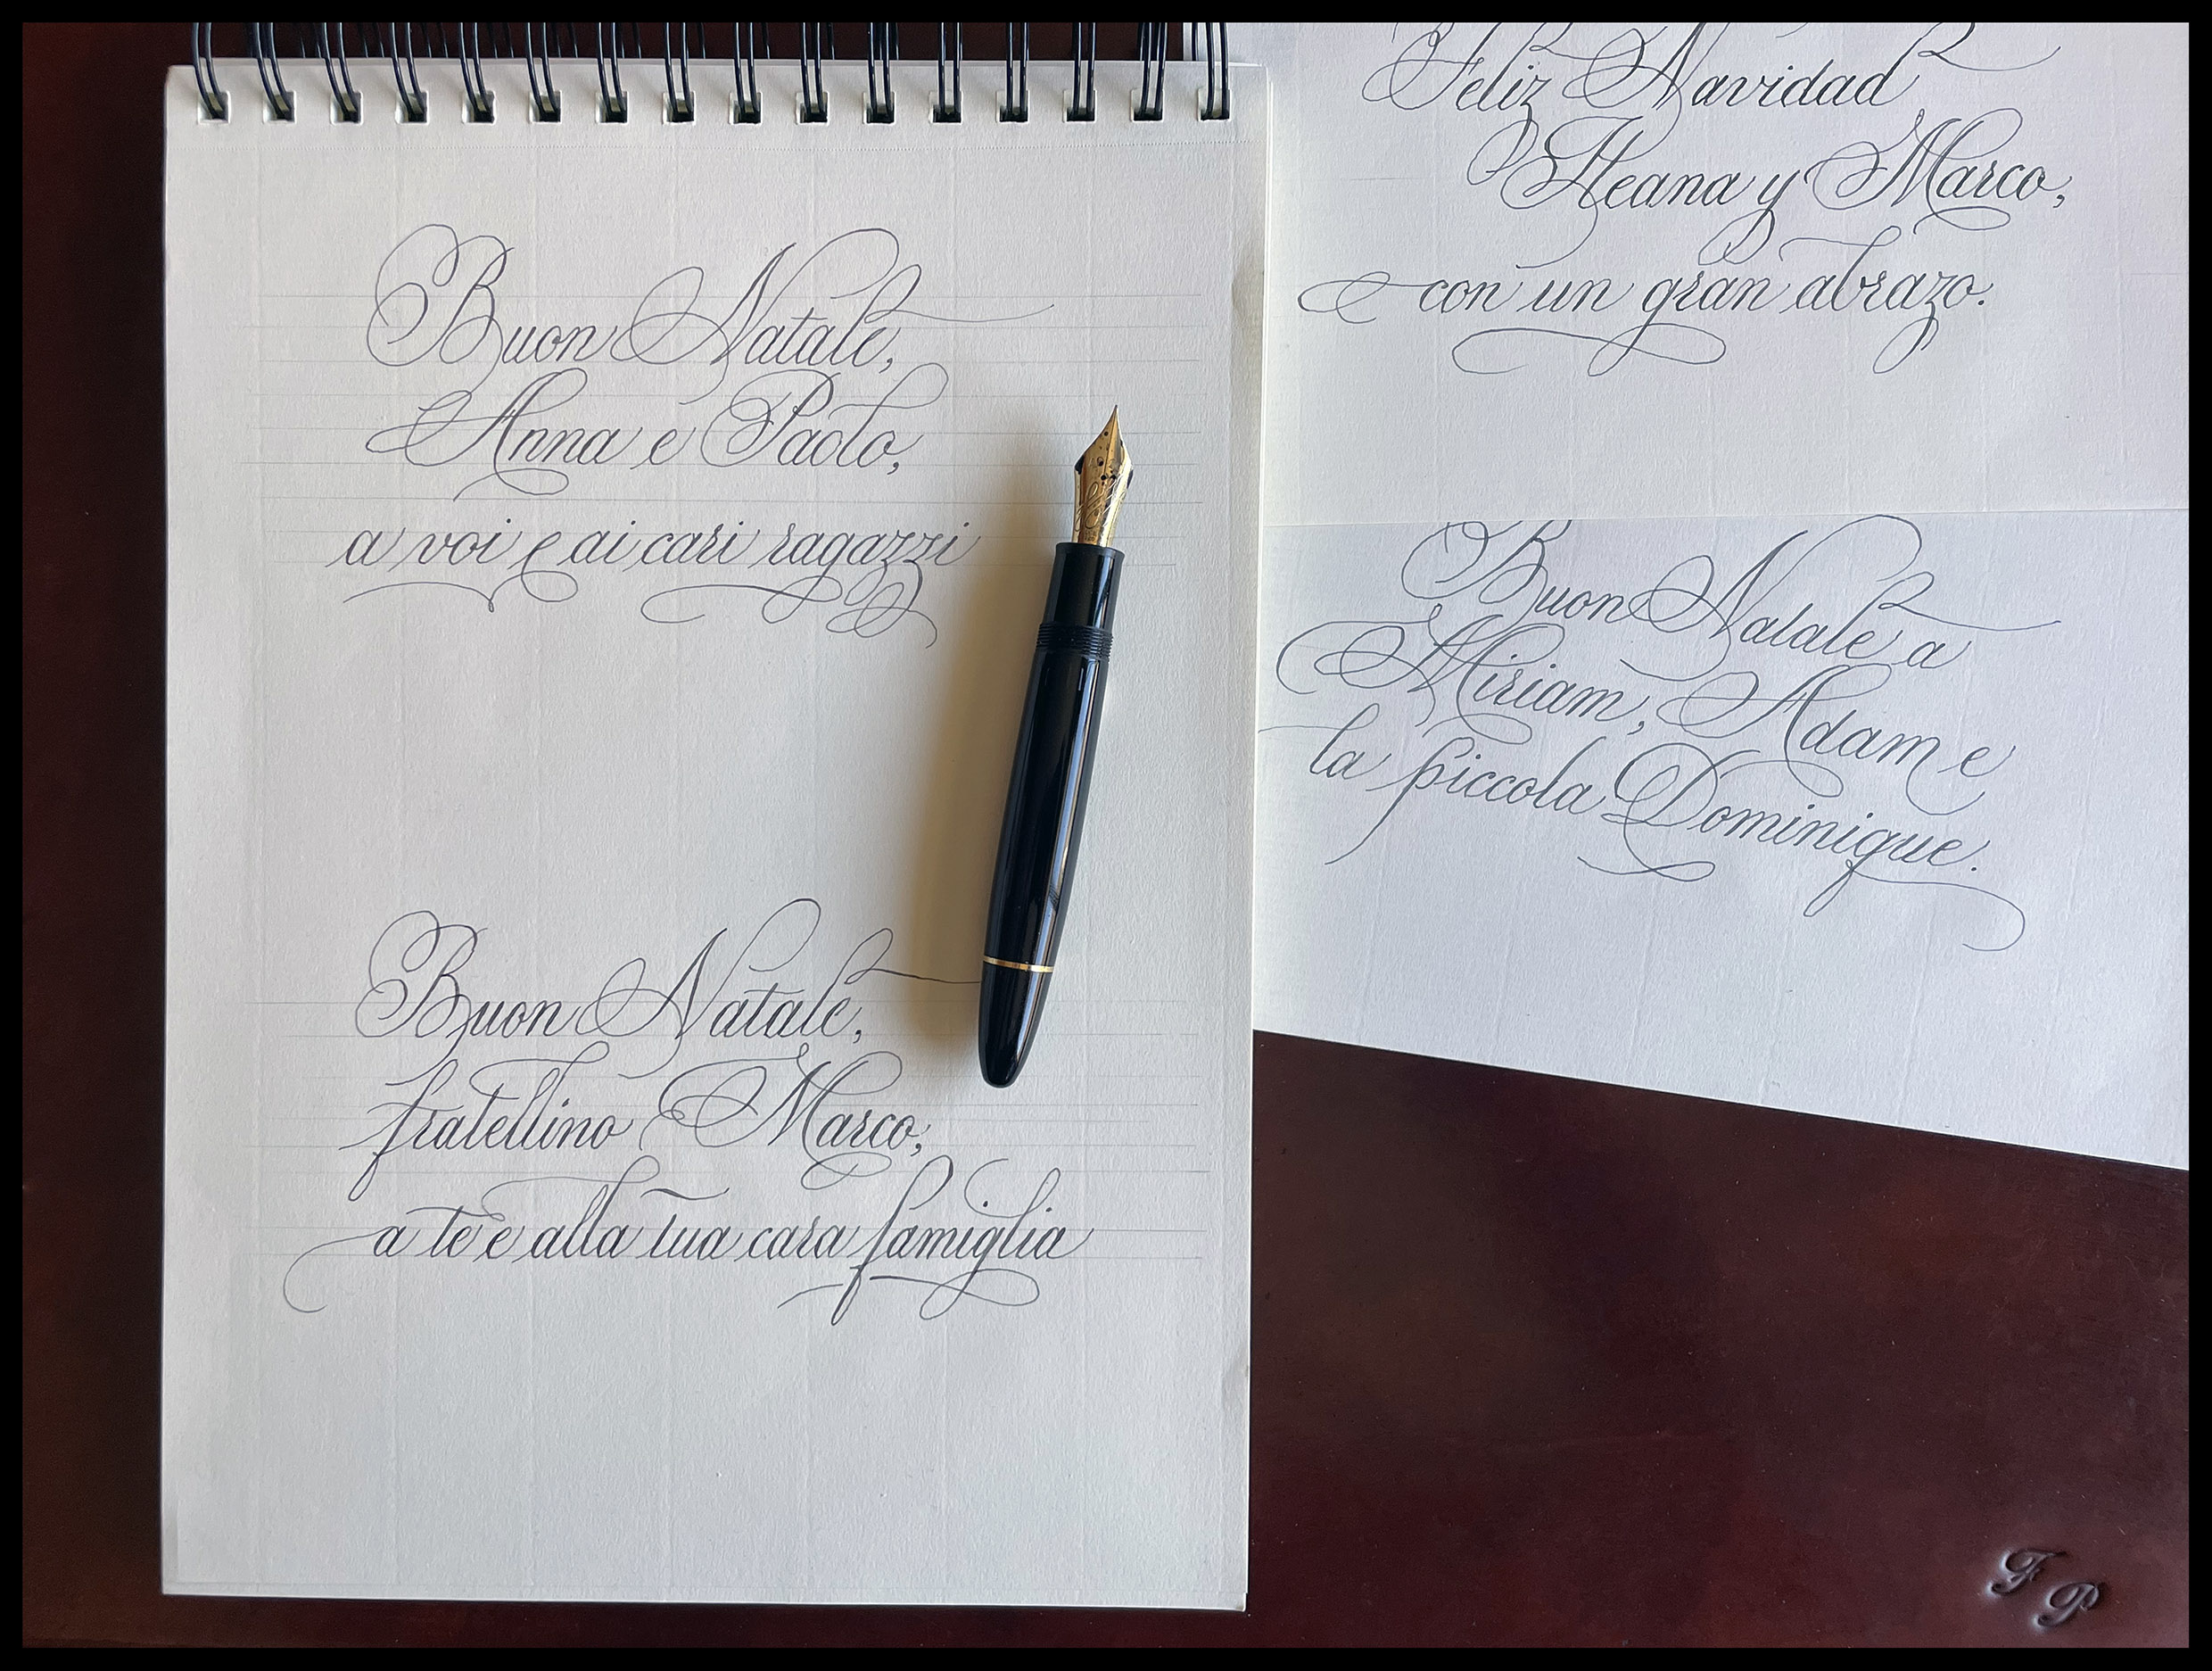 Buon Natale,
Anna e Paolo,
a voi e ai cari ragazzi
Buon Natale,
fratellino Marco,
a te e alla tua cara famiglia
Feliz Navidad
Ileana y Marco,
con un gran abrazo.
Buon Natale a
Miriam, Adam e
la piccola Dominique.
F P